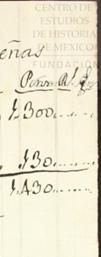 CENTRO DE
ESTUDIOS
DE HISTORIA
DE MEXICO
FUNDACIÓN
eñas
Pesos Rs.
1.300
130
1.430